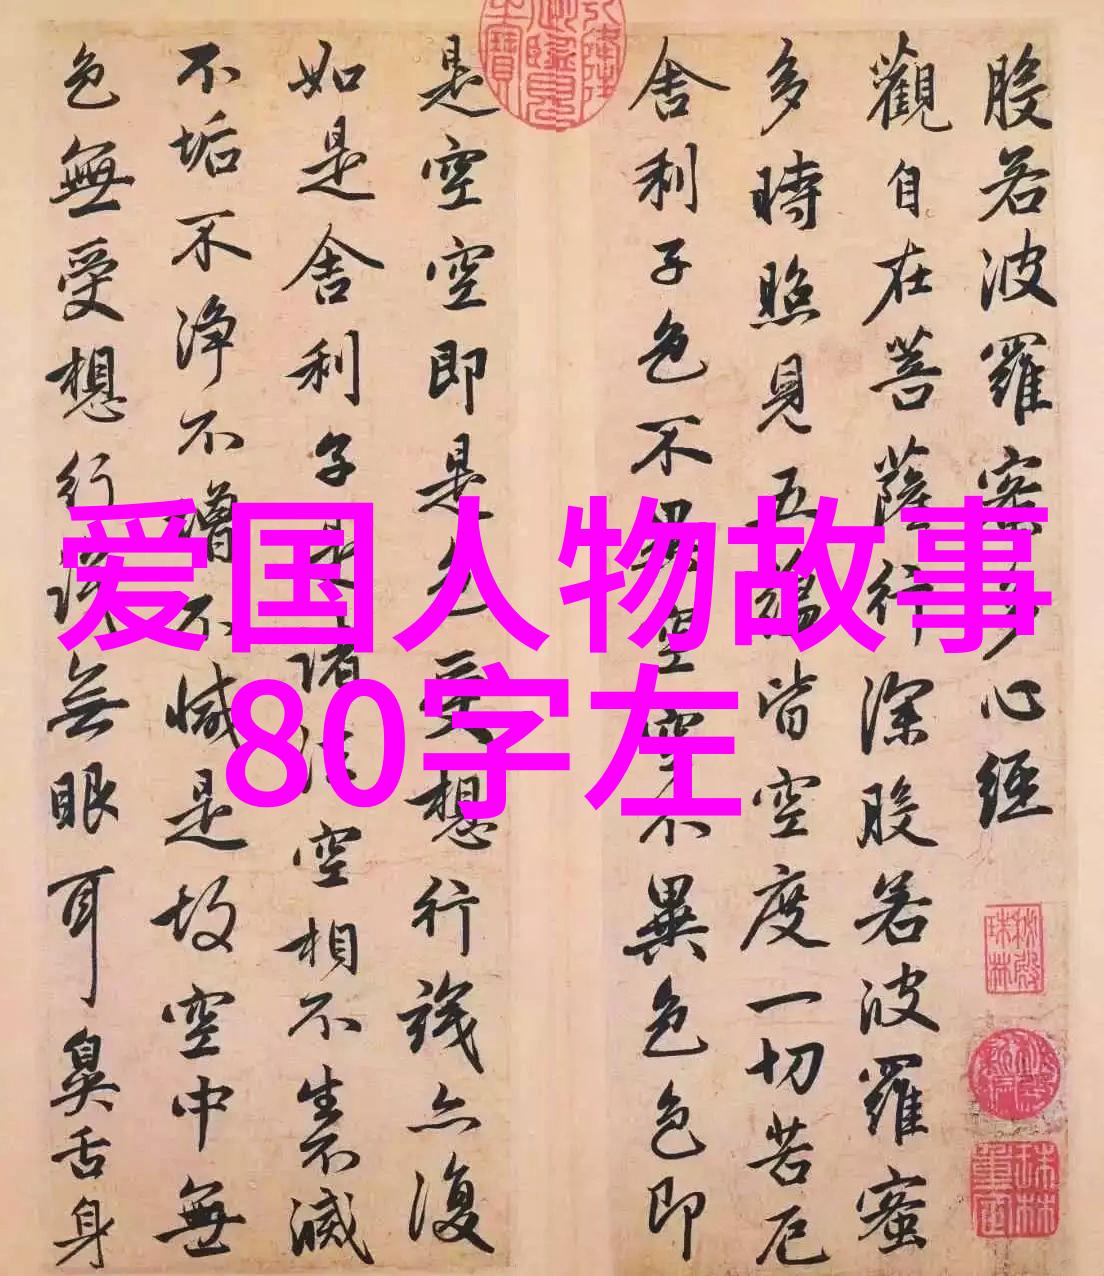 般若波羅蜜多心經
觀自在菩薩行深般若波羅蜜
多時照見五蘊皆空度一切苦厄
舍利子色不異空空不異色色即
是空空即是色受想行識亦復
如是舍利子是諸法空相不生不滅
不垢不淨不增不減是故空中無
色無受想行識無眼耳鼻舌身
爱国人物故事
80字左